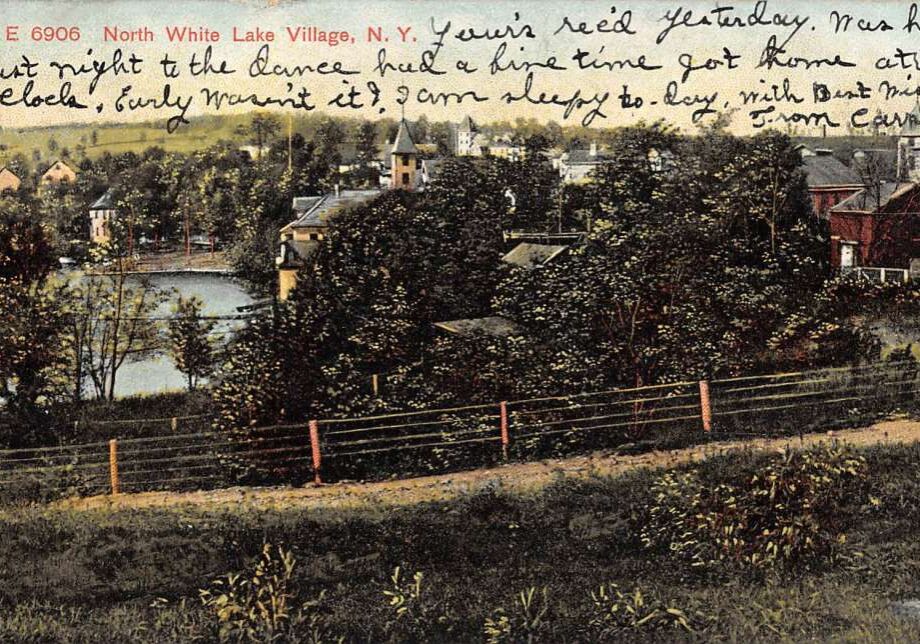 E 6906 North White Lake Village, N. Y.
Your's rec'd yesterday. Was h
st night to the dance had a fine time got home at
clock. Early wasen't it? I am sleepy to-day, with Best Wis
From Carr